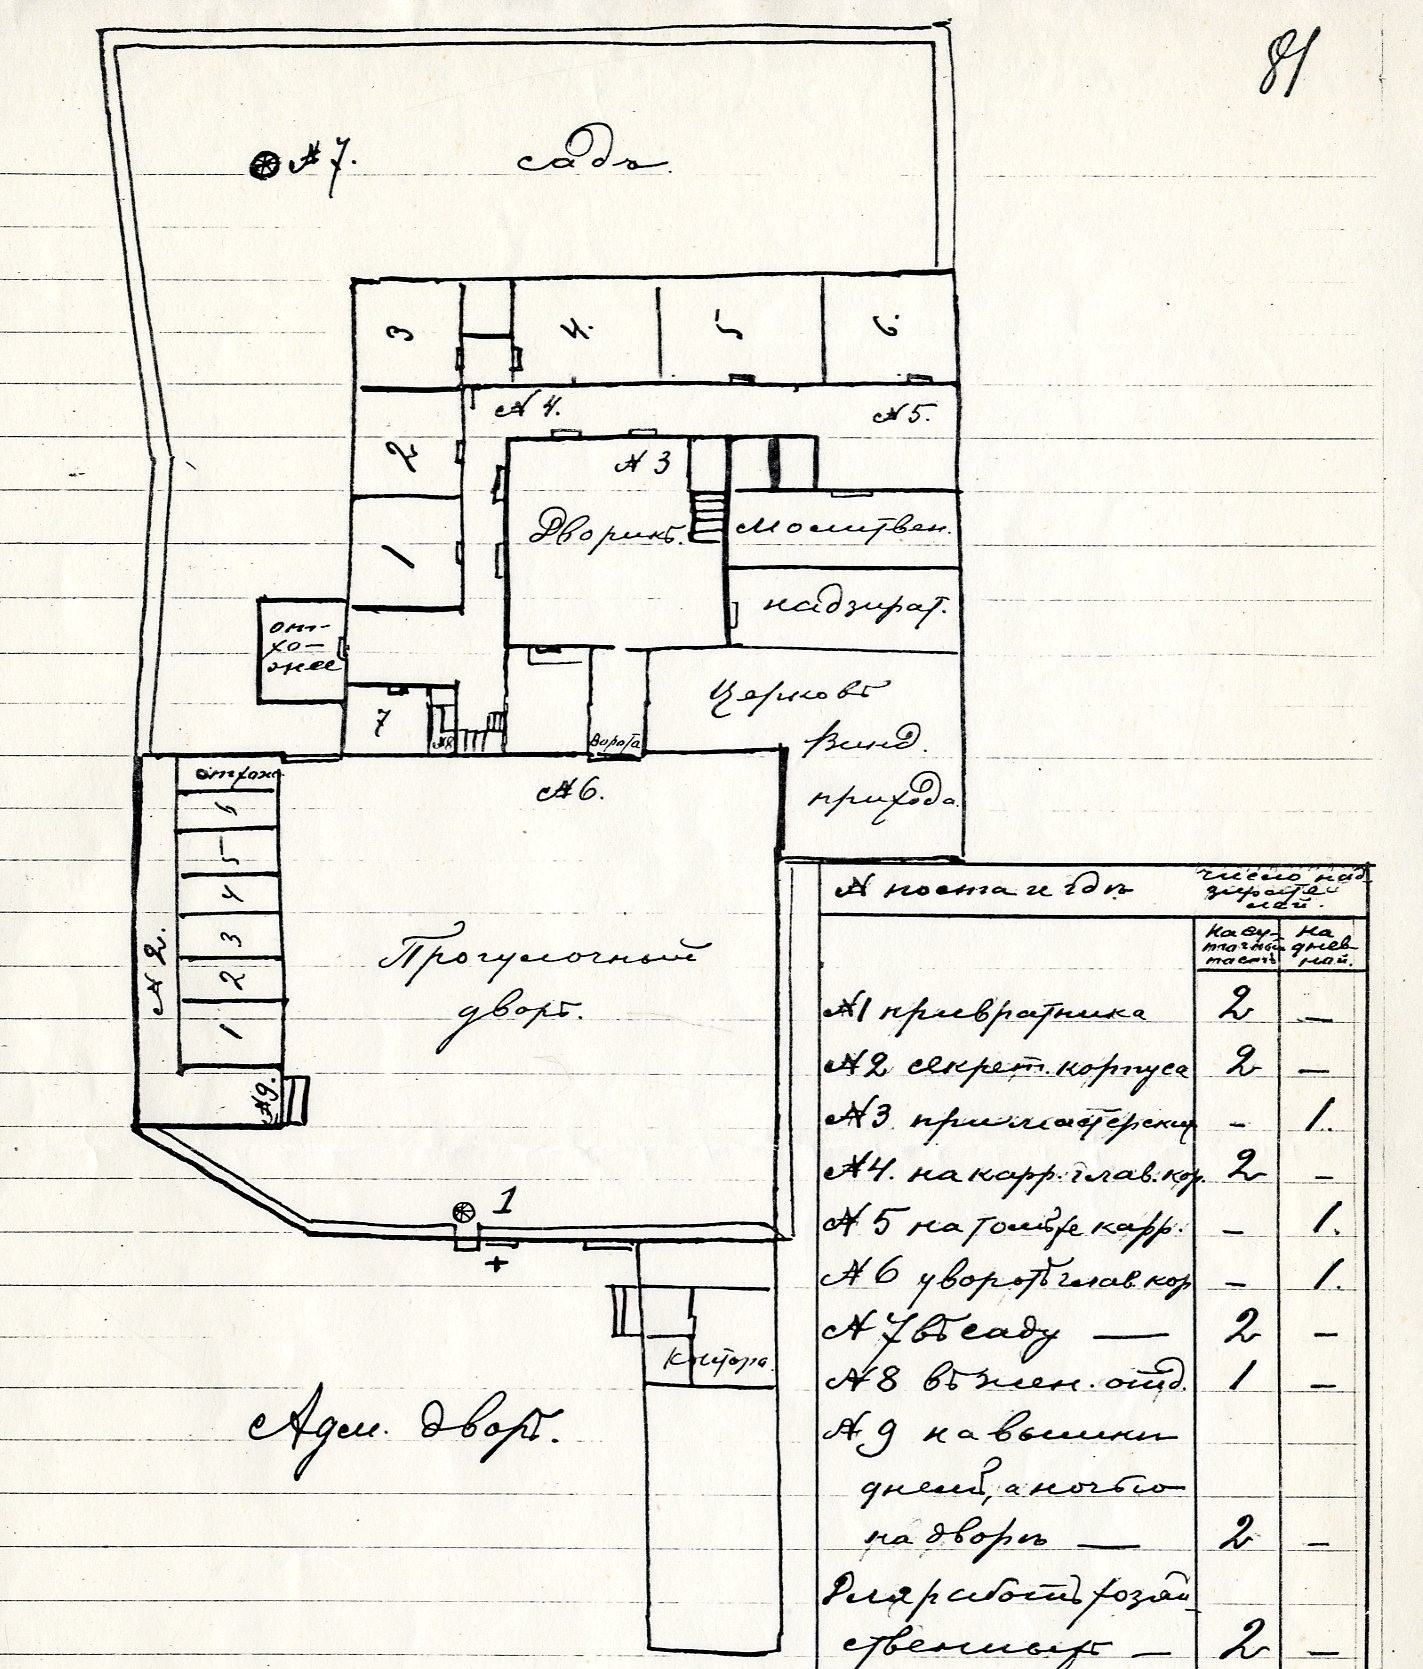 81
№ 7.
садъ.
3
4.
5
6.
№ 4.
№ 5.
2
№ 3
Дворикъ.
Молитвен.
1
надзират.
от-
хо-
жее
Церковь
7
№8
Ворота
Винд.
прихода.
отхож
№ 6.
6
5
4
3
2
1
№ 2.
№9.
Прогулочный
дворъ.
1
+
Контора.
Адм. дворъ.
№ поста и гдѣ
число над-
зирате-
лей.
На су-
точный
постъ
На
днев-
ной.
№1 привратника 2 —
№2 секрет. корпуса 2 —
№3 при мастерских - 1.
№4. на карр. глав. кор. 2 -
№5 на томъ же карр. - 1.
№6 у воротъ глав. кор - 1.
№7 въ саду — 2 -
№8 въ жен. отд. 1 -
№9 на вышки
днемъ, а ночью
на дворѣ — 2 -
Для работъ хозяй-
ственныхъ — 2 -